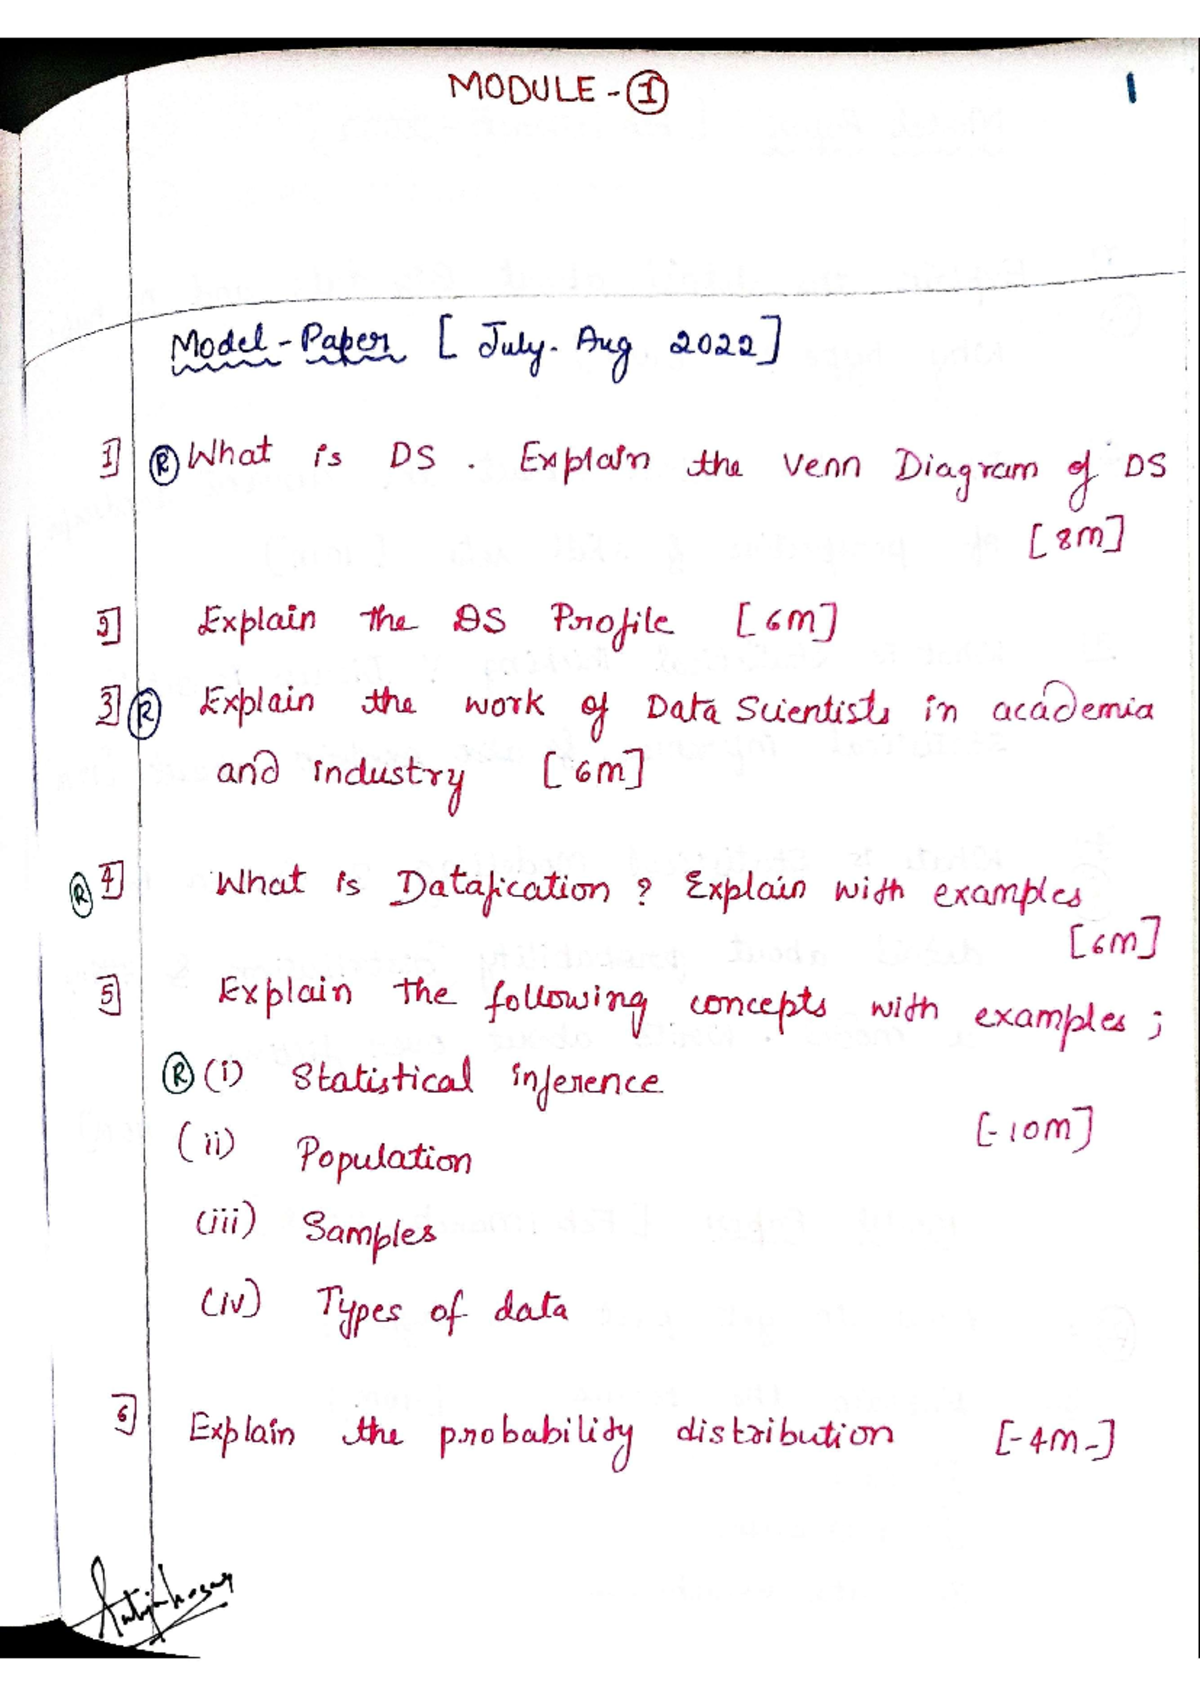 MODULE - 1
1
Model-Paper [ July. Aug 2022]
1] R What is DS . Explain the Venn Diagram of DS
[8M]
2] Explain the DS Profile [6M]
3] R Explain the work of Data Scientists in academia
and industry [6M]
R 4] What is Datafication ? Explain with examples
[6M]
5] Explain the following concepts with examples ;
R (i) Statistical inference
[-10M]
(ii) Population
(iii) Samples
(iv) Types of data
6] Explain the probability distribution [-4M-]